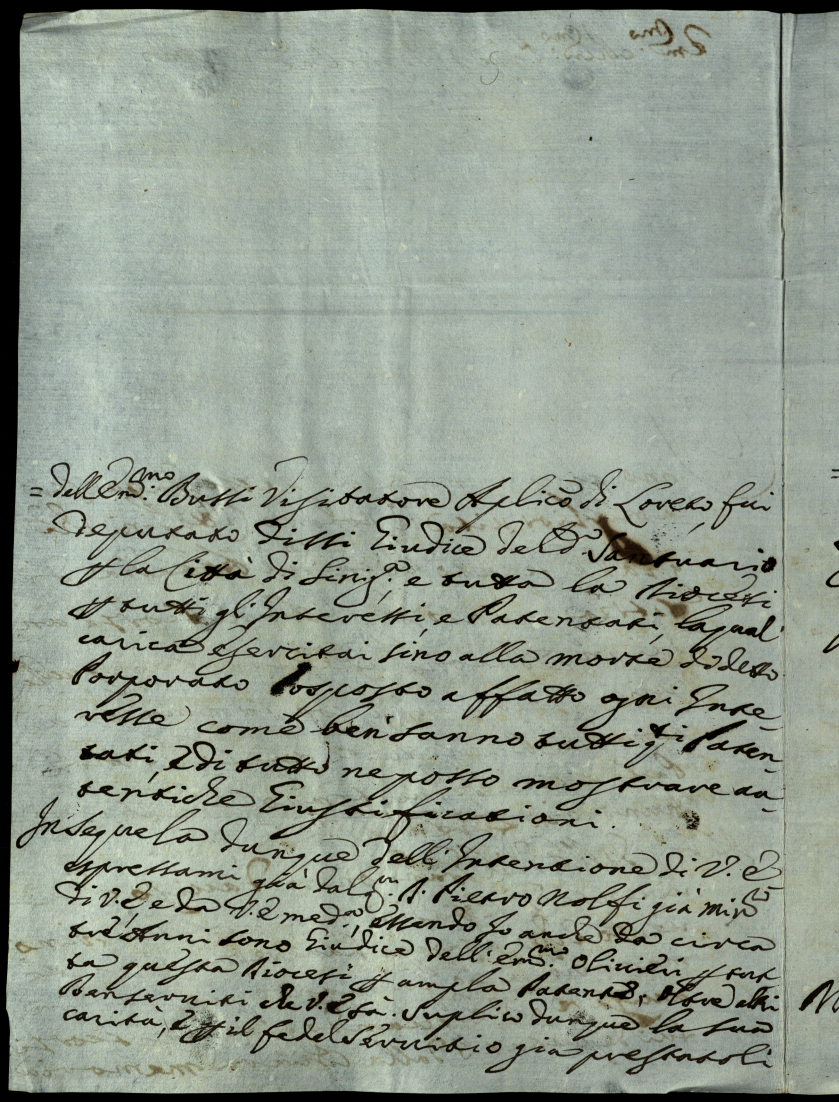 = dell'Em.mo Bussi Visitatore Aplico di Loreto fui
deputato dissi Giudice del d.o Santuario
p la Città di Sinig.a, e tutta la Diocesi
p tutti gl'Interessi, e Patentati, la qual
carica esercitai sino alla morte di detto
Porporato posposto affatto ogni Inte-
resse come ben sanno tutti q.ti Paten-
tati, e di tutto ne posso mostrare au-
tentiche Giustificazioni.
In sequela dunque dell'Intenzione di V. E.
espressami già dal Sig.r D. Pietro Nolfi già min.o
di V. E. e da V. E. med.a, essendo Io anche da circa
trè Anni sono Giudice dell'Em.mo Olivieri p tut
ta questa Diocesi p ampla Patente, oltre altri
Benserviti che V. E. sà. Suplico dunque la sua
carità, e p il fedel Servitio già prestatoli